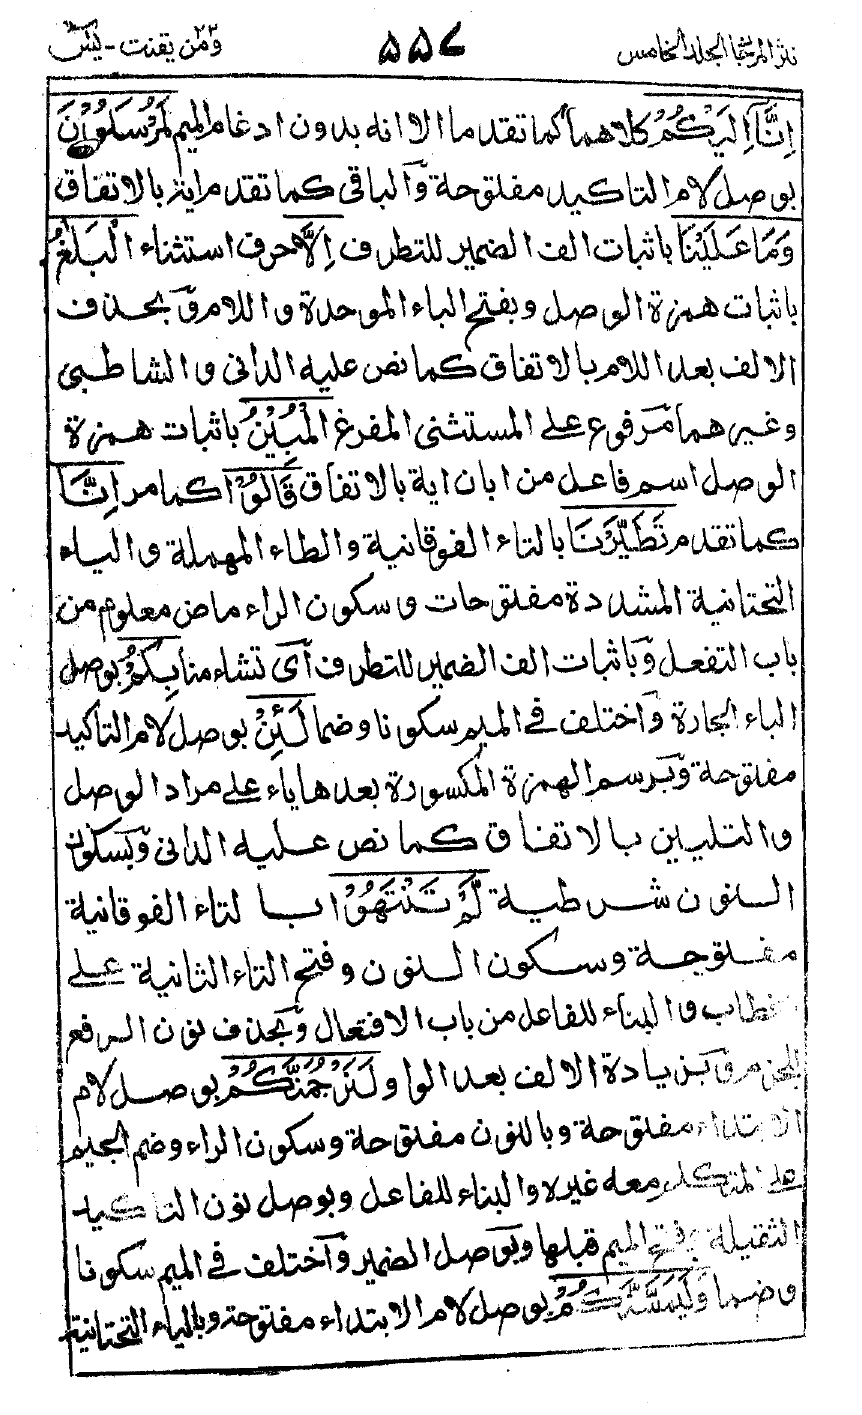 نثر المرجان الجلد الخامس
۵۵۷
ومن يقنت - يٰس
۲۲
اِنَّآ اِلَيْكُمْ كلاهما كما تقدما الا انه بدون ادغام الميم لَمُرْسَلُوْنَ
بوصل لام التاكيد مفتوحة والباقى كما تقدم اية بالاتفاق
وَمَا عَلَيْنَا باثبات الف الضمير للتطرف اِلَّا حرف استثناء الْبَلٰغُ
باثبات همزة الوصل وبفتح الباء الموحدة واللام وبحذف
الالف بعد اللام بالاتفاق كما نص عليه الدانى والشاطبى
وغيرهما مرفوع على المستثنى المفرغ الْمُبِيْنُ باثبات همزة
الوصل اسم فاعل من ابان اية بالاتفاق قَالُوْا كما مر اِنَّا
كما تقدم تَطَيَّرْنَا بالتاء الفوقانية والطاء المهملة والياء
التحتانية المشددة مفتوحات وسكون الراء ماض معلوم من
باب التفعل وباثبات الف الضمير للتطرف اى تشاءمنا بِكُمْ بوصل
الباء الجارة واختلف فى الميم سكونا وضما لَئِنْ بوصل لام التاكيد
مفتوحة وبرسم الهمزة المكسورة بعدها ياء على مراد الوصل
والتليين بالاتفاق كما نص عليه الدانى وبسكون
النون شرطية لَّمْ تَنْتَهُوْا بالتاء الفوقانية
مفتوحة وسكون النون وفتح التاء الثانية على
الخطاب والبناء للفاعل من باب الافتعال وبحذف نون الرفع
للجزم وبزيادة الالف بعد الواو لَنَرْجُمَنَّكُمْ بوصل لام
الابتداء مفتوحة وبالنون مفتوحة وسكون الراء وضم الجيم
على المتكلم معه غيره والبناء للفاعل وبوصل نون التاكيد
الثقيلة وفتح الميم قبلها وبوصل الضمير واختلف فى الميم سكونا
وضما وَلَيَمَسَّنَّكُمْ بوصل لام الابتداء مفتوحة وبالياء التحتانية